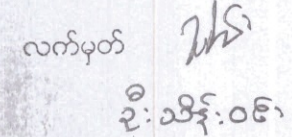 လက်မှတ်
ဦးသိန်းဝင်း